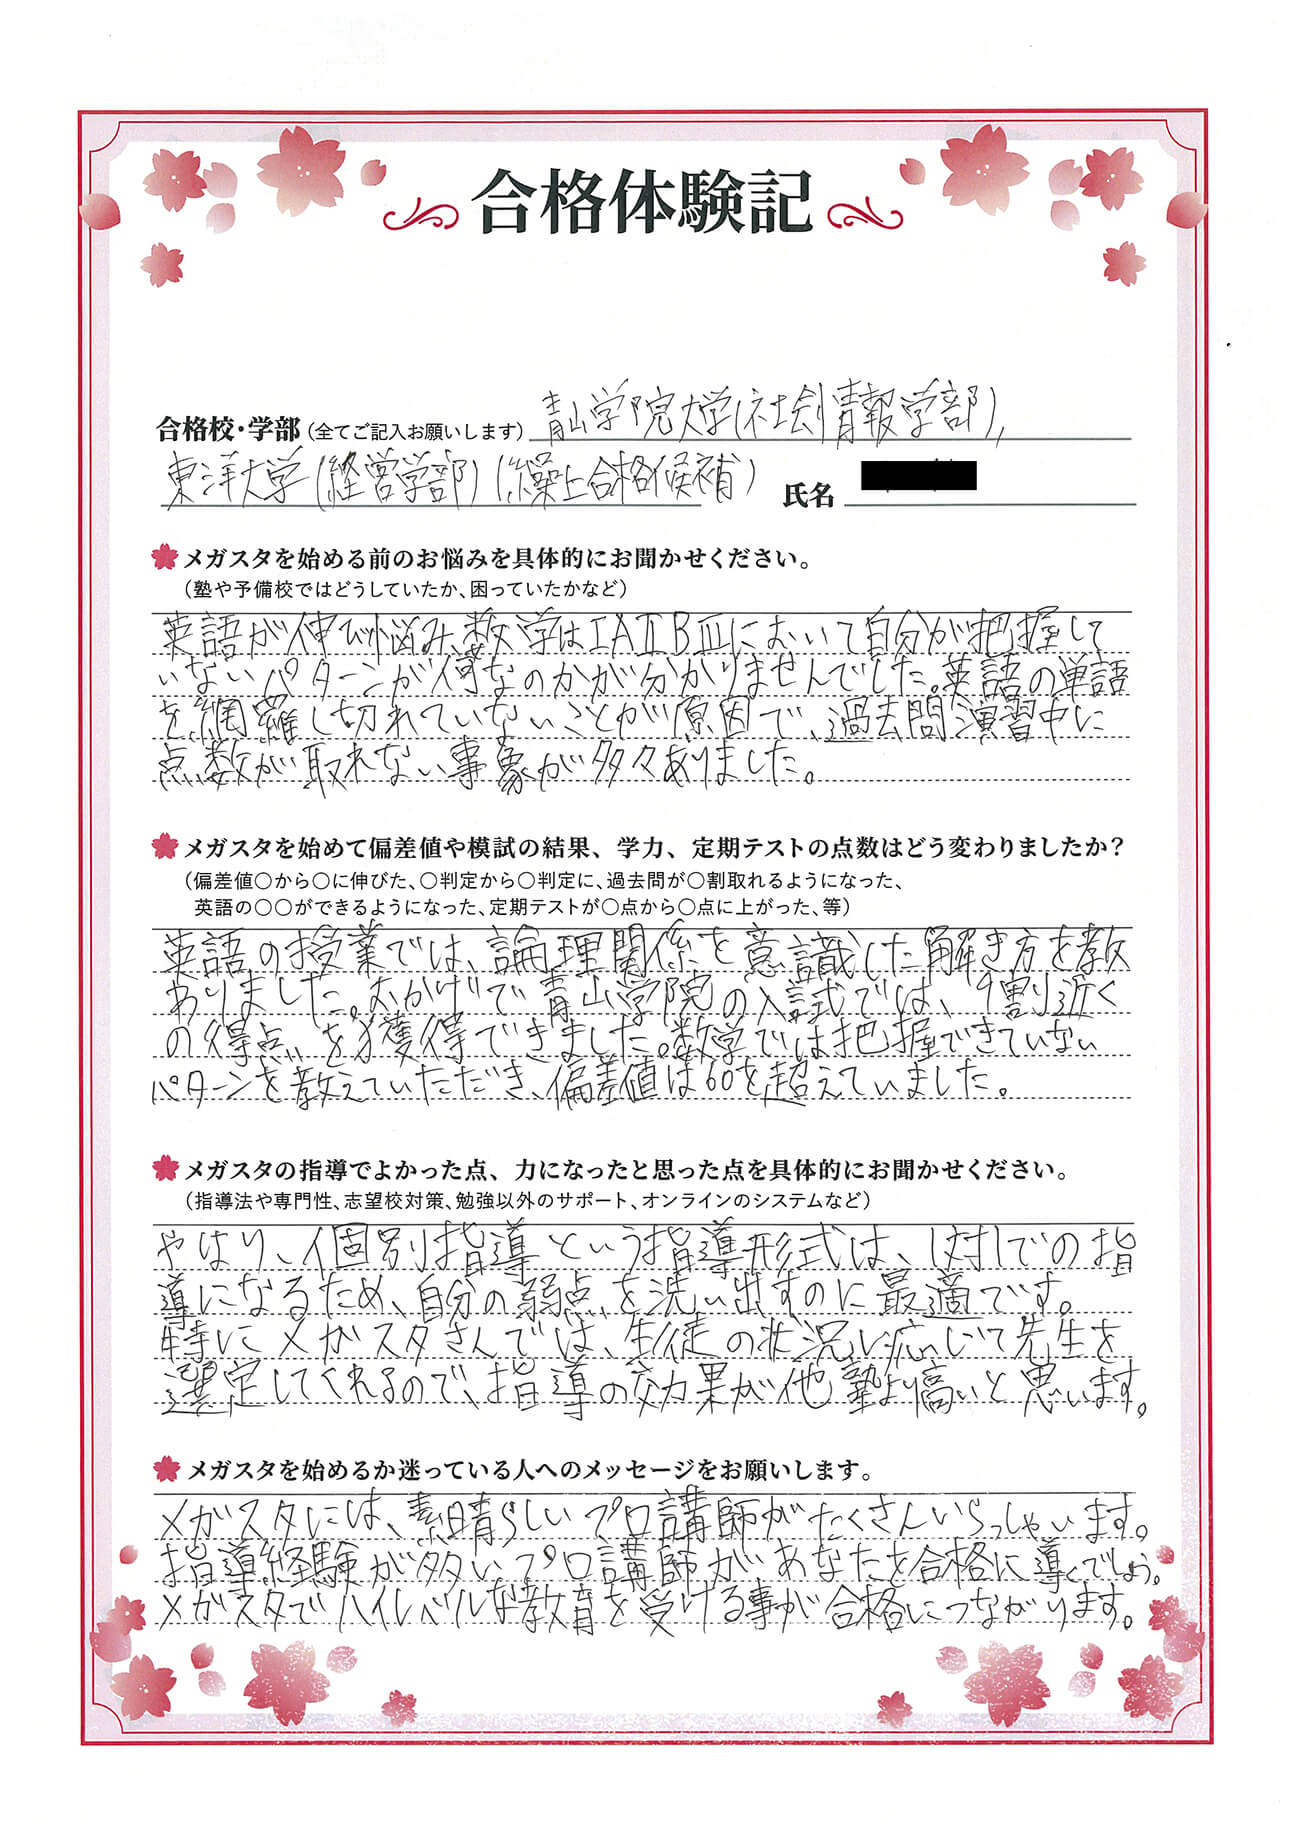 合格体験記
合格校・学部(全てご記入お願いします) 青山学院大学(社会情報学部),
東洋大学(経営学部)(繰上合格候補) 氏名
メガスタを始める前のお悩みを具体的にお聞かせください。
(塾や予備校ではどうしていたか、困っていたかなど)
英語が伸び悩み、数学はⅠAⅡBⅢにおいて自分が把握して
いないパターンが何なのかが分かりませんでした。英語の単語
を網羅し切れていないことが原因で、過去問演習中に
点数が取れない事象が多々ありました。
メガスタを始めて偏差値や模試の結果、学力、定期テストの点数はどう変わりましたか?
(偏差値〇から〇に伸びた、〇判定から〇判定に、過去問が〇割取れるようになった、
英語の〇〇ができるようになった、定期テストが〇点から〇点に上がった、等)
英語の授業では、論理関係を意識した解き方を教
わりました。おかげで青山学院の入試では、9割近く
の得点を獲得できました。数学では把握できていない
パターンを教えていただき、偏差値は60を超えていました。
メガスタの指導でよかった点、力になったと思った点を具体的にお聞かせください。
(指導法や専門性、志望校対策、勉強以外のサポート、オンラインのシステムなど)
やはり、個別指導という指導形式は、1対1での指
導になるため、自分の弱点を洗い出すのに最適です。
特にメガスタさんでは、生徒の状況に応じて先生を
選定してくれるので、指導の効果が他塾より高いと思います。
メガスタを始めるか迷っている人へのメッセージをお願いします。
メガスタには、素晴らしいプロ講師がたくさんいらっしゃいます。
指導経験が多いプロ講師があなたを合格に導くでしょう。
メガスタでハイレベルな教育を受ける事が合格につながります。